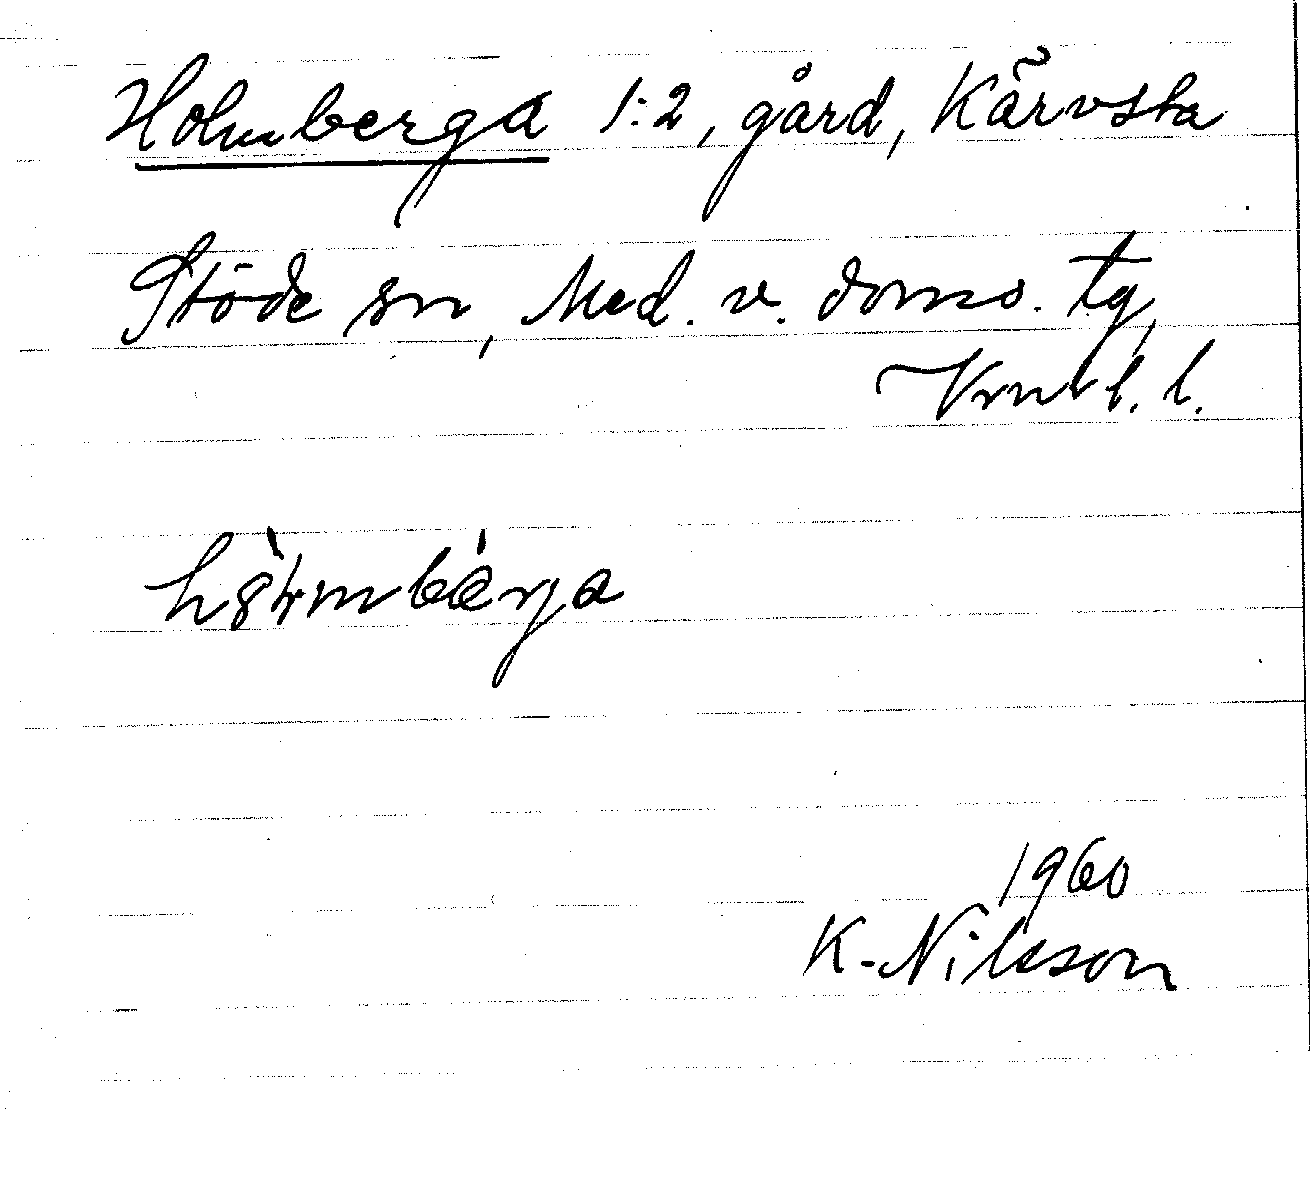 Holmberga 1:2, gård, Kärvsta
Stöde sn, Med. v. doms. tg,
Vrnl. l.
1960
K. Nilsson